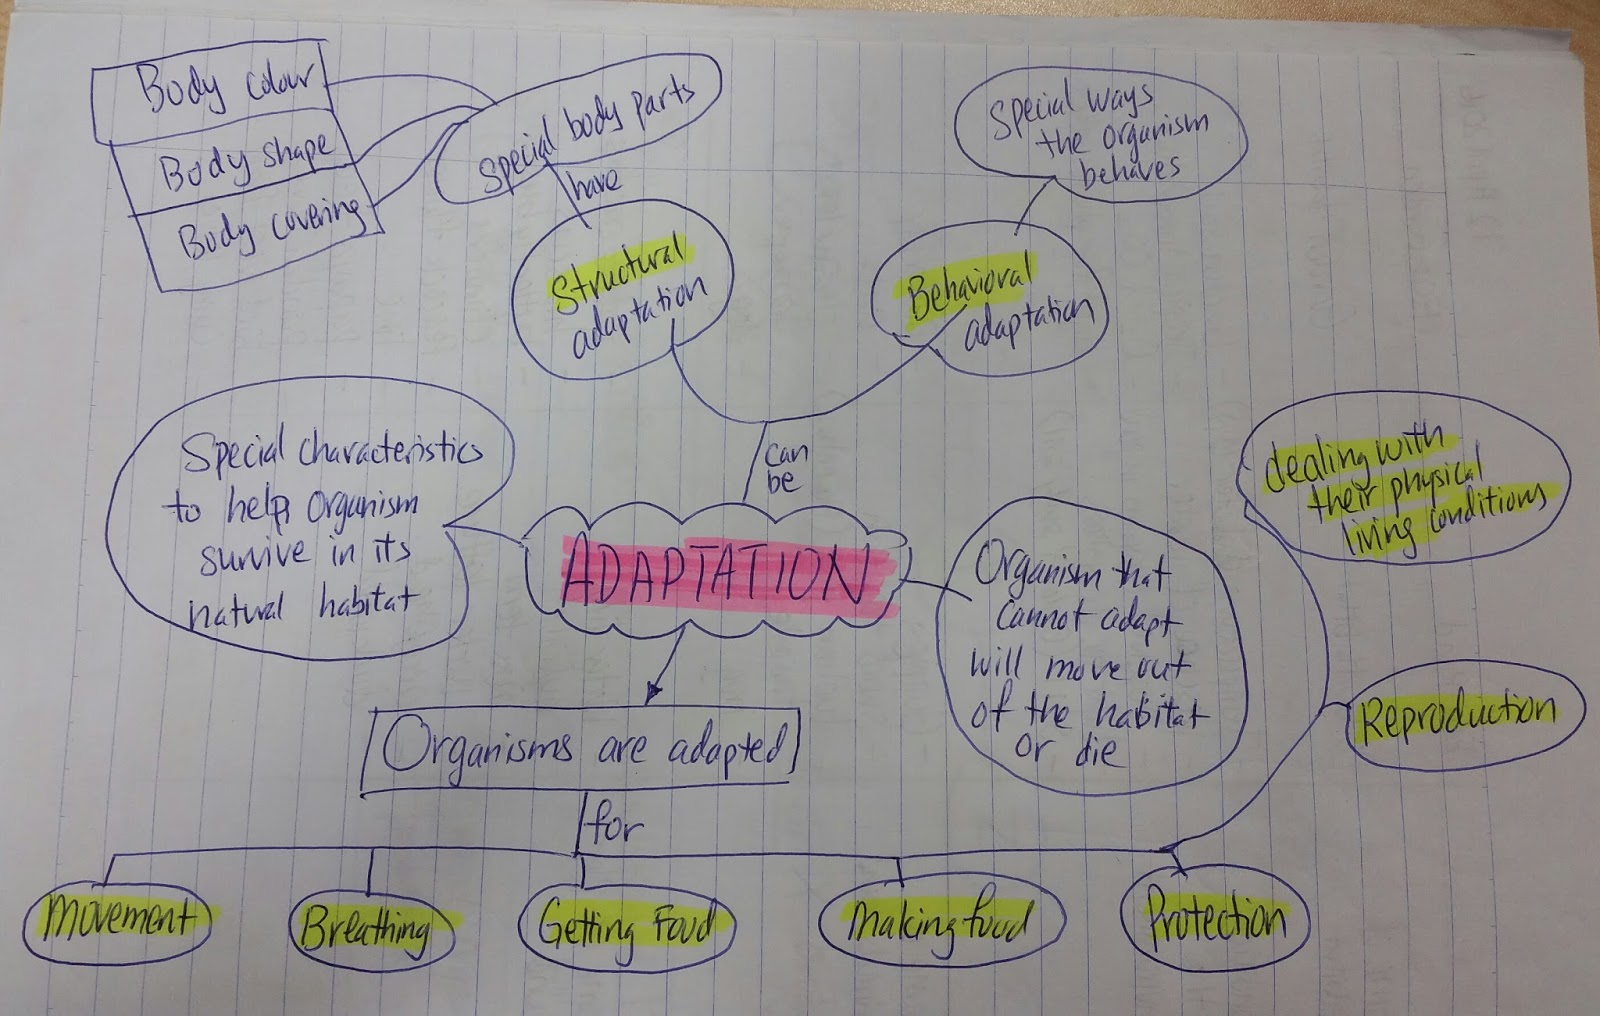 Body colour
Body shape
Body covering
Special body parts
have
Structural
adaptation
Special ways
the organism
behaves
Behavioral
adaptation
can
be
Special characteristics
to help organism
survive in its
natural habitat
ADAPTATION
Organism that
cannot adapt
will move out
of the habitat
or die
dealing with
their physical
living conditions
Reproduction
Organisms are adapted
for
Movement
Breathing
Getting Food
Making food
Protection